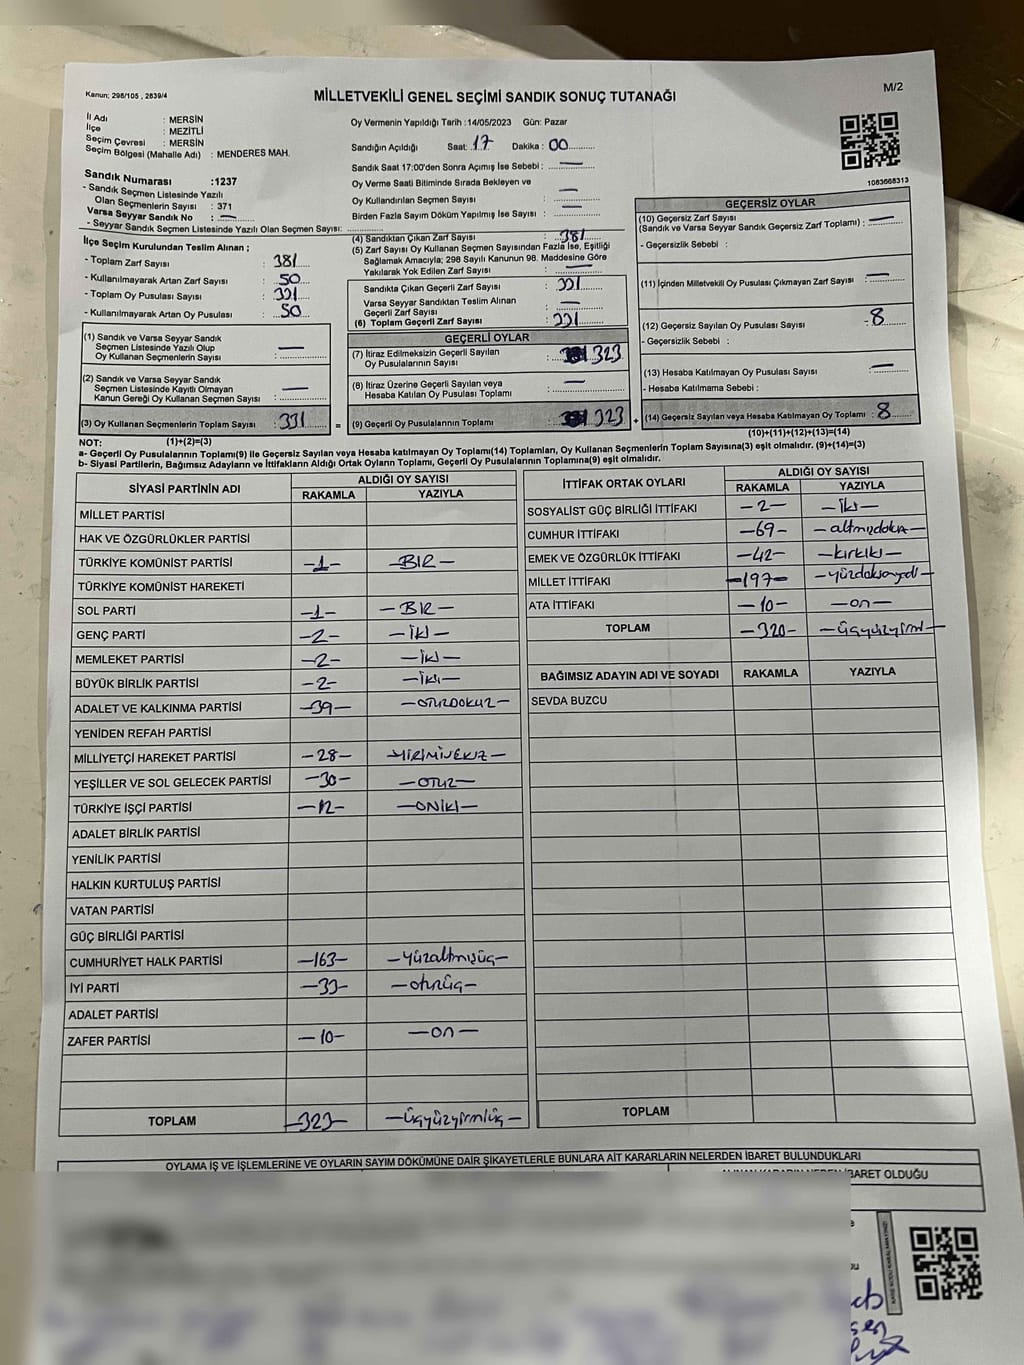 Kanun: 298/105 , 2839/4
MİLLETVEKİLİ GENEL SEÇİMİ SANDIK SONUÇ TUTANAĞI
M/2
İl Adı : MERSİN
İlçe : MEZİTLİ
Seçim Çevresi : MERSİN
Seçim Bölgesi (Mahalle Adı) : MENDERES MAH.
Sandık Numarası :1237
- Sandık Seçmen Listesinde Yazılı
Olan Seçmenlerin Sayısı : 371
Varsa Seyyar Sandık No : —
- Seyyar Sandık Seçmen Listesinde Yazılı Olan Seçmen Sayısı:
Oy Vermenin Yapıldığı Tarih :14/05/2023 Gün: Pazar
Sandığın Açıldığı Saat: 17 Dakika : 00
Sandık Saat 17:00'den Sonra Açılmış İse Sebebi : —
Oy Verme Saati Bitiminde Sırada Bekleyen ve
Oy Kullandırılan Seçmen Sayısı : —
Birden Fazla Sayım Döküm Yapılmış İse Sayısı : —
1083668313
İlçe Seçim Kurulundan Teslim Alınan ;
- Toplam Zarf Sayısı : 381
- Kullanılmayarak Artan Zarf Sayısı : 50
- Toplam Oy Pusulası Sayısı :
- Kullanılmayarak Artan Oy Pusulası : 50
(1) Sandık ve Varsa Seyyar Sandık
Seçmen Listesinde Yazılı Olup
Oy Kullanan Seçmenlerin Sayısı : —
(2) Sandık ve Varsa Seyyar Sandık
Seçmen Listesinde Kayıtlı Olmayan
Kanun Gereği Oy Kullanan Seçmen Sayısı : —
(3) Oy Kullanan Seçmenlerin Toplam Sayısı : 331
(1)+(2)=(3)
(4) Sandıktan Çıkan Zarf Sayısı : 381
(5) Zarf Sayısı Oy Kullanan Seçmen Sayısından Fazla İse, Eşitliği
Sağlamak Amacıyla; 298 Sayılı Kanunun 98. Maddesine Göre
Yakılarak Yok Edilen Zarf Sayısı : —
Sandıkta Çıkan Geçerli Zarf Sayısı : 331
Varsa Seyyar Sandıktan Teslim Alınan
Geçerli Zarf Sayısı : —
(6) Toplam Geçerli Zarf Sayısı : 331
GEÇERLİ OYLAR
(7) İtiraz Edilmeksizin Geçerli Sayılan
Oy Pusulalarının Sayısı : 323
(8) İtiraz Üzerine Geçerli Sayılan veya
Hesaba Katılan Oy Pusulası Toplamı : —
= (9) Geçerli Oy Pusulalarının Toplamı : 323
GEÇERSİZ OYLAR
(10) Geçersiz Zarf Sayısı
(Sandık ve Varsa Seyyar Sandık Geçersiz Zarf Toplamı) : —
- Geçersizlik Sebebi :
(11) İçinden Milletvekili Oy Pusulası Çıkmayan Zarf Sayısı : —
(12) Geçersiz Sayılan Oy Pusulası Sayısı : 8
- Geçersizlik Sebebi :
(13) Hesaba Katılmayan Oy Pusulası Sayısı : —
- Hesaba Katılmama Sebebi :
+ (14) Geçersiz Sayılan veya Hesaba Katılmayan Oy Toplamı : 8
(10)+(11)+(12)+(13)=(14)
NOT:
a- Geçerli Oy Pusulalarının Toplamı(9) ile Geçersiz Sayılan veya Hesaba katılmayan Oy Toplamı(14) Toplamları, Oy Kullanan Seçmenlerin Toplam Sayısına(3) eşit olmalıdır. (9)+(14)=(3)
b- Siyasi Partilerin, Bağımsız Adayların ve İttifakların Aldığı Ortak Oyların Toplamı, Geçerli Oy Pusulalarının Toplamına(9) eşit olmalıdır.
SİYASİ PARTİNİN ADI ALDIĞI OY SAYISI
RAKAMLA YAZIYLA
MİLLET PARTİSİ
HAK VE ÖZGÜRLÜKLER PARTİSİ
TÜRKİYE KOMÜNİST PARTİSİ —1— —BİR—
TÜRKİYE KOMÜNİST HAREKETİ
SOL PARTİ —1— —BİR—
GENÇ PARTİ —2— —İKİ—
MEMLEKET PARTİSİ —2— —İKİ—
BÜYÜK BİRLİK PARTİSİ —2— —İKİ—
ADALET VE KALKINMA PARTİSİ —39— —OTUZDOKUZ—
YENİDEN REFAH PARTİSİ
MİLLİYETÇİ HAREKET PARTİSİ —28—
YEŞİLLER VE SOL GELECEK PARTİSİ —30— —OTUZ—
TÜRKİYE İŞÇİ PARTİSİ —12— —ONİKİ—
ADALET BİRLİK PARTİSİ
YENİLİK PARTİSİ
HALKIN KURTULUŞ PARTİSİ
VATAN PARTİSİ
GÜÇ BİRLİĞİ PARTİSİ
CUMHURİYET HALK PARTİSİ —163— —yüzaltmışüç—
İYİ PARTİ —33— —otuzüç—
ADALET PARTİSİ
ZAFER PARTİSİ —10— —on—
TOPLAM —323— —üçyüzyirmiüç—
İTTİFAK ORTAK OYLARI ALDIĞI OY SAYISI
RAKAMLA YAZIYLA
SOSYALİST GÜÇ BİRLİĞİ İTTİFAKI —2— —iki—
CUMHUR İTTİFAKI —69—
EMEK VE ÖZGÜRLÜK İTTİFAKI —42— —kırkiki—
MİLLET İTTİFAKI —197—
ATA İTTİFAKI —10— —on—
TOPLAM —320— —üçyüzyirmi—
BAĞIMSIZ ADAYIN ADI VE SOYADI RAKAMLA YAZIYLA
SEVDA BUZCU
TOPLAM
OYLAMA İŞ VE İŞLEMLERİNE VE OYLARIN SAYIM DÖKÜMÜNE DAİR ŞİKAYETLERLE BUNLARA AİT KARARLARIN NELERDEN İBARET BULUNDUKLARI
İBARET OLDUĞU